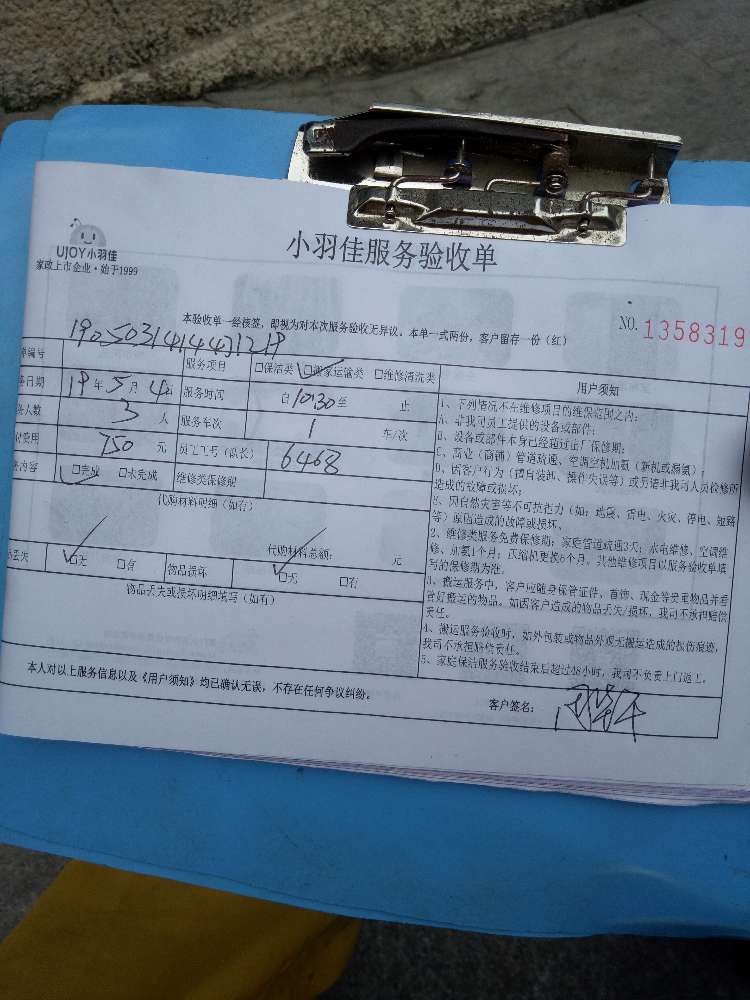 UJOY小羽佳
家政上市企业·始于1999
小羽佳服务验收单
本验收单一经核签，即视为对本次服务验收无异议。本单一式两份，客户留存一份（红）
NO. 1358319
编号 服务项目 □保洁类 □搬家运输类 □维修清洗类
日期 19年5月4日 服务时间 自10:30至 止
人数 3 人 服务车次 1 车/次
费用 750 元 员工工号（队长） 6468
内容 □完成 □未完成 维修类保修期
代购材料明细（如有）
代购材料总额： 元
丢失 □无 □有 物品损坏 □无 □有
物品丢失或损坏明细填写（如有）
用户须知
1、下列情况不在维修项目的维保范围之内：
A、非我司员工提供的设备或部件；
B、设备或部件本身已经超过出厂保修期；
C、商业（商铺）管道疏通、空调空机加氨（新机或漏氟）；
D、因客户行为（擅自装卸、操作失误等）或另请非我司人员检修所
造成的故障或损坏；
E、因自然灾害等不可抗拒力（如：地震、雷电、火灾、停电、短路
等）原因造成的故障或损坏。
2、维修类服务免费保修期：家庭管道疏通3天；水电维修、空调维
修、加氟1个月；压缩机更换6个月，其他维修项目以服务验收单填
写的保修期为准。
3、搬运服务中，客户应随身保管证件、首饰、现金等贵重物品并看
管好搬运的物品。如因客户造成的物品丢失/损坏，我司不承担赔偿
责任。
4、搬运服务验收时，如外包装或物品外观无搬运造成的损伤痕迹，
我司不承担赔偿责任。
5、家庭保洁服务验收结束后超过48小时，我司不负责上门返工。
本人对以上服务信息以及《用户须知》均已确认无误，不存在任何争议纠纷。
客户签名：